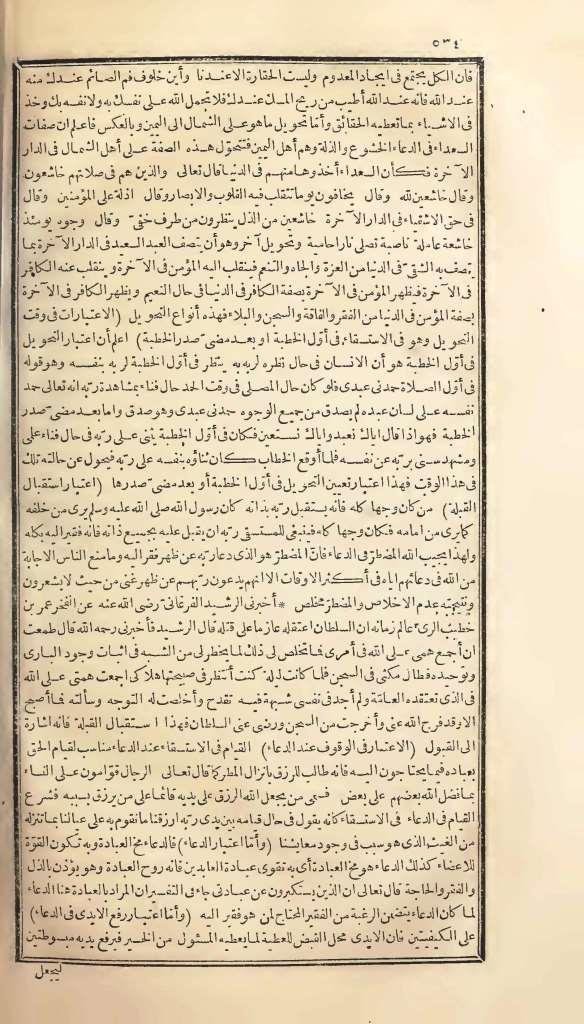 ٥٣٤
فان الكل يجتمع فى ايجاد المعدوم وليست الحقارة الاعندنا وأين خلوف فم الصائم عندك منه
عند الله فانه عند الله أطيب من ريح المسك عندك فلا تحمل الله على نفسك به ولا نفسه بك وخذ
فى الاشياء بما تعطيه الحقائق وأما تحويل ما هو على الشمال الى اليمين وبالعكس فاعلم ان صفات
السعداء فى الدعاء الخشوع والذلة وهم أهل اليمين فتتحول هذه الصفة على أهل الشمال فى الدار
الآخرة فكأن السعداء أخذوها منهم فى الدنيا قال تعالى والذين هم فى صلاتهم خاشعون
وقال خاشعين لله وقال يخافون يوما تتقلب فيه القلوب والابصار وقال اذلة على المؤمنين وقال
فى حق الاشقياء فى الدار الآخرة خاشعين من الذل ينظرون من طرف خفى وقال وجوه يومئذ
خاشعة عاملة ناصبة تصلى نارا حامية وتحويل آخر وهو أن يتصف العبد السعيد فى الدار الآخرة بما
يتصف به الشقى فى الدنيا من العزة والجاه والتنعم فينقلب اليه المؤمن فى الآخرة وينقلب عنه الكافر
فى الآخرة فيظهر المؤمن فى الآخرة بصفة الكافر فى الدنيا فى حال النعيم ويظهر الكافر فى الآخرة
بصفة المؤمن فى الدنيا من الفقر والفاقة والسجن والبلاء فهذه أنواع التحويل (الاعتبارات فى وقت
التحويل وهو فى الاستسقاء فى أول الخطبة او بعد مضى صدر الخطبة) اعلم أن اعتبار التحويل
فى أول الخطبة هو أن الانسان فى حال نظره لربه بربه ينظر فى أول الخطبة لربه بنفسه وهو قوله
فى أول الصلاة حمدنى عبدى فلو كان حال المصلى فى وقت الحمد حال فناء بمشاهدة ربه انه تعالى حمد
نفسه على لسان عبده لم يصدق من جميع الوجوه حمدنى عبدى وهو صدق واما بعد مضى صدر
الخطبة فهو اذا قال اياك نعبد واياك نستعين فكان فى أول الخطبة يثنى على ربه فى حال فناء على
ومشهد سنى بربه عن نفسه فلما أوقع الخطاب كان ثناؤه بنفسه على ربه فيحول عن حالته تلك
فى هذا الوقت فهذا اعتبار تعيين التحويل فى أول الخطبة أو بعد مضى صدرها (اعتبار استقبال
القبلة) من كان وجها كله فانه يستقبل ربه بذاته كان رسول الله صلى الله عليه وسلم يرى من خلفه
كما يرى من امامه فكان وجها كله فينبغى للمستسقى ربه ان يقبل عليه بجميع ذاته فانه فقير اليه بكله
ولهذا يجيب الله المضطر فى الدعاء فان المضطر هو الذى دعا ربه عن ظهر فقر اليه وما منع الناس الاجابة
من الله فى دعائهم اياه فى أكثر الاوقات الا انهم يدعون ربهم عن ظهر غنى من حيث لا يشعرون
ونتيجته عدم الاخلاص والمضطر مخلص * أخبرنى الرشيد الفرغانى رضى الله عنه عن الفخر عمر بن
خطيب الرى عالم زمانه ان السلطان اعتقله عازما على قتله قال الرشيد فأخبرنى رحمه الله قال طمعت
أن أجمع همى على الله فى أمرى فما تخلص لى ذلك لما يخطر لى من الشبه فى اثبات وجود البارى
وتوحيده فطال مكثى فى السجن فلما كانت ليلة كنت أنتظر فى صبيحتها هلاكى اجمعت همتى على الله
فى الذى تعتقده العامة ولم أجد فى نفسى شبهة فيه تقدح وأخلصت له التوجه وسألته فما أصبح
الا وقد فرج الله عنى وأخرجت من السجن ورضى عنى السلطان فهذا استقبال القبلة فانه اشارة
الى القبول (الاعتبار فى الوقوف عند الدعاء) القيام فى الاستسقاء عند الدعاء مناسب لقيام الحق
بعباده فيما يحتاجون اليه فانه طالب للرزق بانزال المطر كما قال تعالى الرجال قوامون على النساء
بما فضل الله بعضهم على بعض فسمى من يجعل الله الرزق على يديه قائما على من يرزق بسببه فشرع
القيام فى الدعاء فى الاستسقاء كانه يقول فى حال قيامه بين يدى ربه ارزقنا ما نقوم به على عيالنا بما تنزله
من الغيث الذى هو سبب فى وجود معايشنا (وأما اعتبار الدعاء) فالدعاء مخ العبادة وبه تكون القوة
للاعضاء كذلك الدعاء هو مخ العبادة أى به تقوى عبادة العابدين فانه روح العبادة وهو يؤذن بالذل
والفقر والحاجة قال تعالى ان الذين يستكبرون عن عبادتى جاء فى التفسير ان المراد بالعبادة هنا الدعاء
لما كان الدعاء يتضمن الرغبة من الفقير المحتاج لمن هو فقير اليه (وأما اعتبار رفع الايدى فى الدعاء)
على الكيفيتين فان الايدى محل القبض للعطية لما يعطيه المسئول من الخير فيرفع يديه مبسوطتين
ليجعل